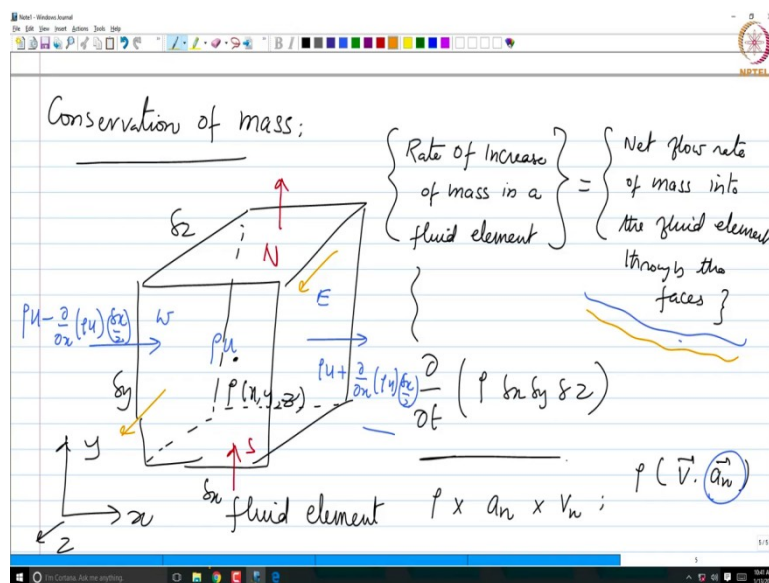 Note1 - Windows Journal
File Edit View Insert Actions Tools Help
NPTEL
Conservation of mass;
{ Rate of Increase of mass in a fluid element } = { Net flow rate of mass into the fluid element through the faces }
δz
N
E
ρu - ∂/∂x (ρu) (δx/2)
W
ρu
ρu + ∂/∂x (ρu) δx/2
ρ(x,y,z)
δy
∂/∂t ( ρ δx δy δz )
S
δx
y
x
z
fluid element
ρ × aₙ × vₙ ;
ρ ( V⃗ . a⃗ₙ )
5/5
5
I'm Cortana. Ask me anything.
10:41 AM